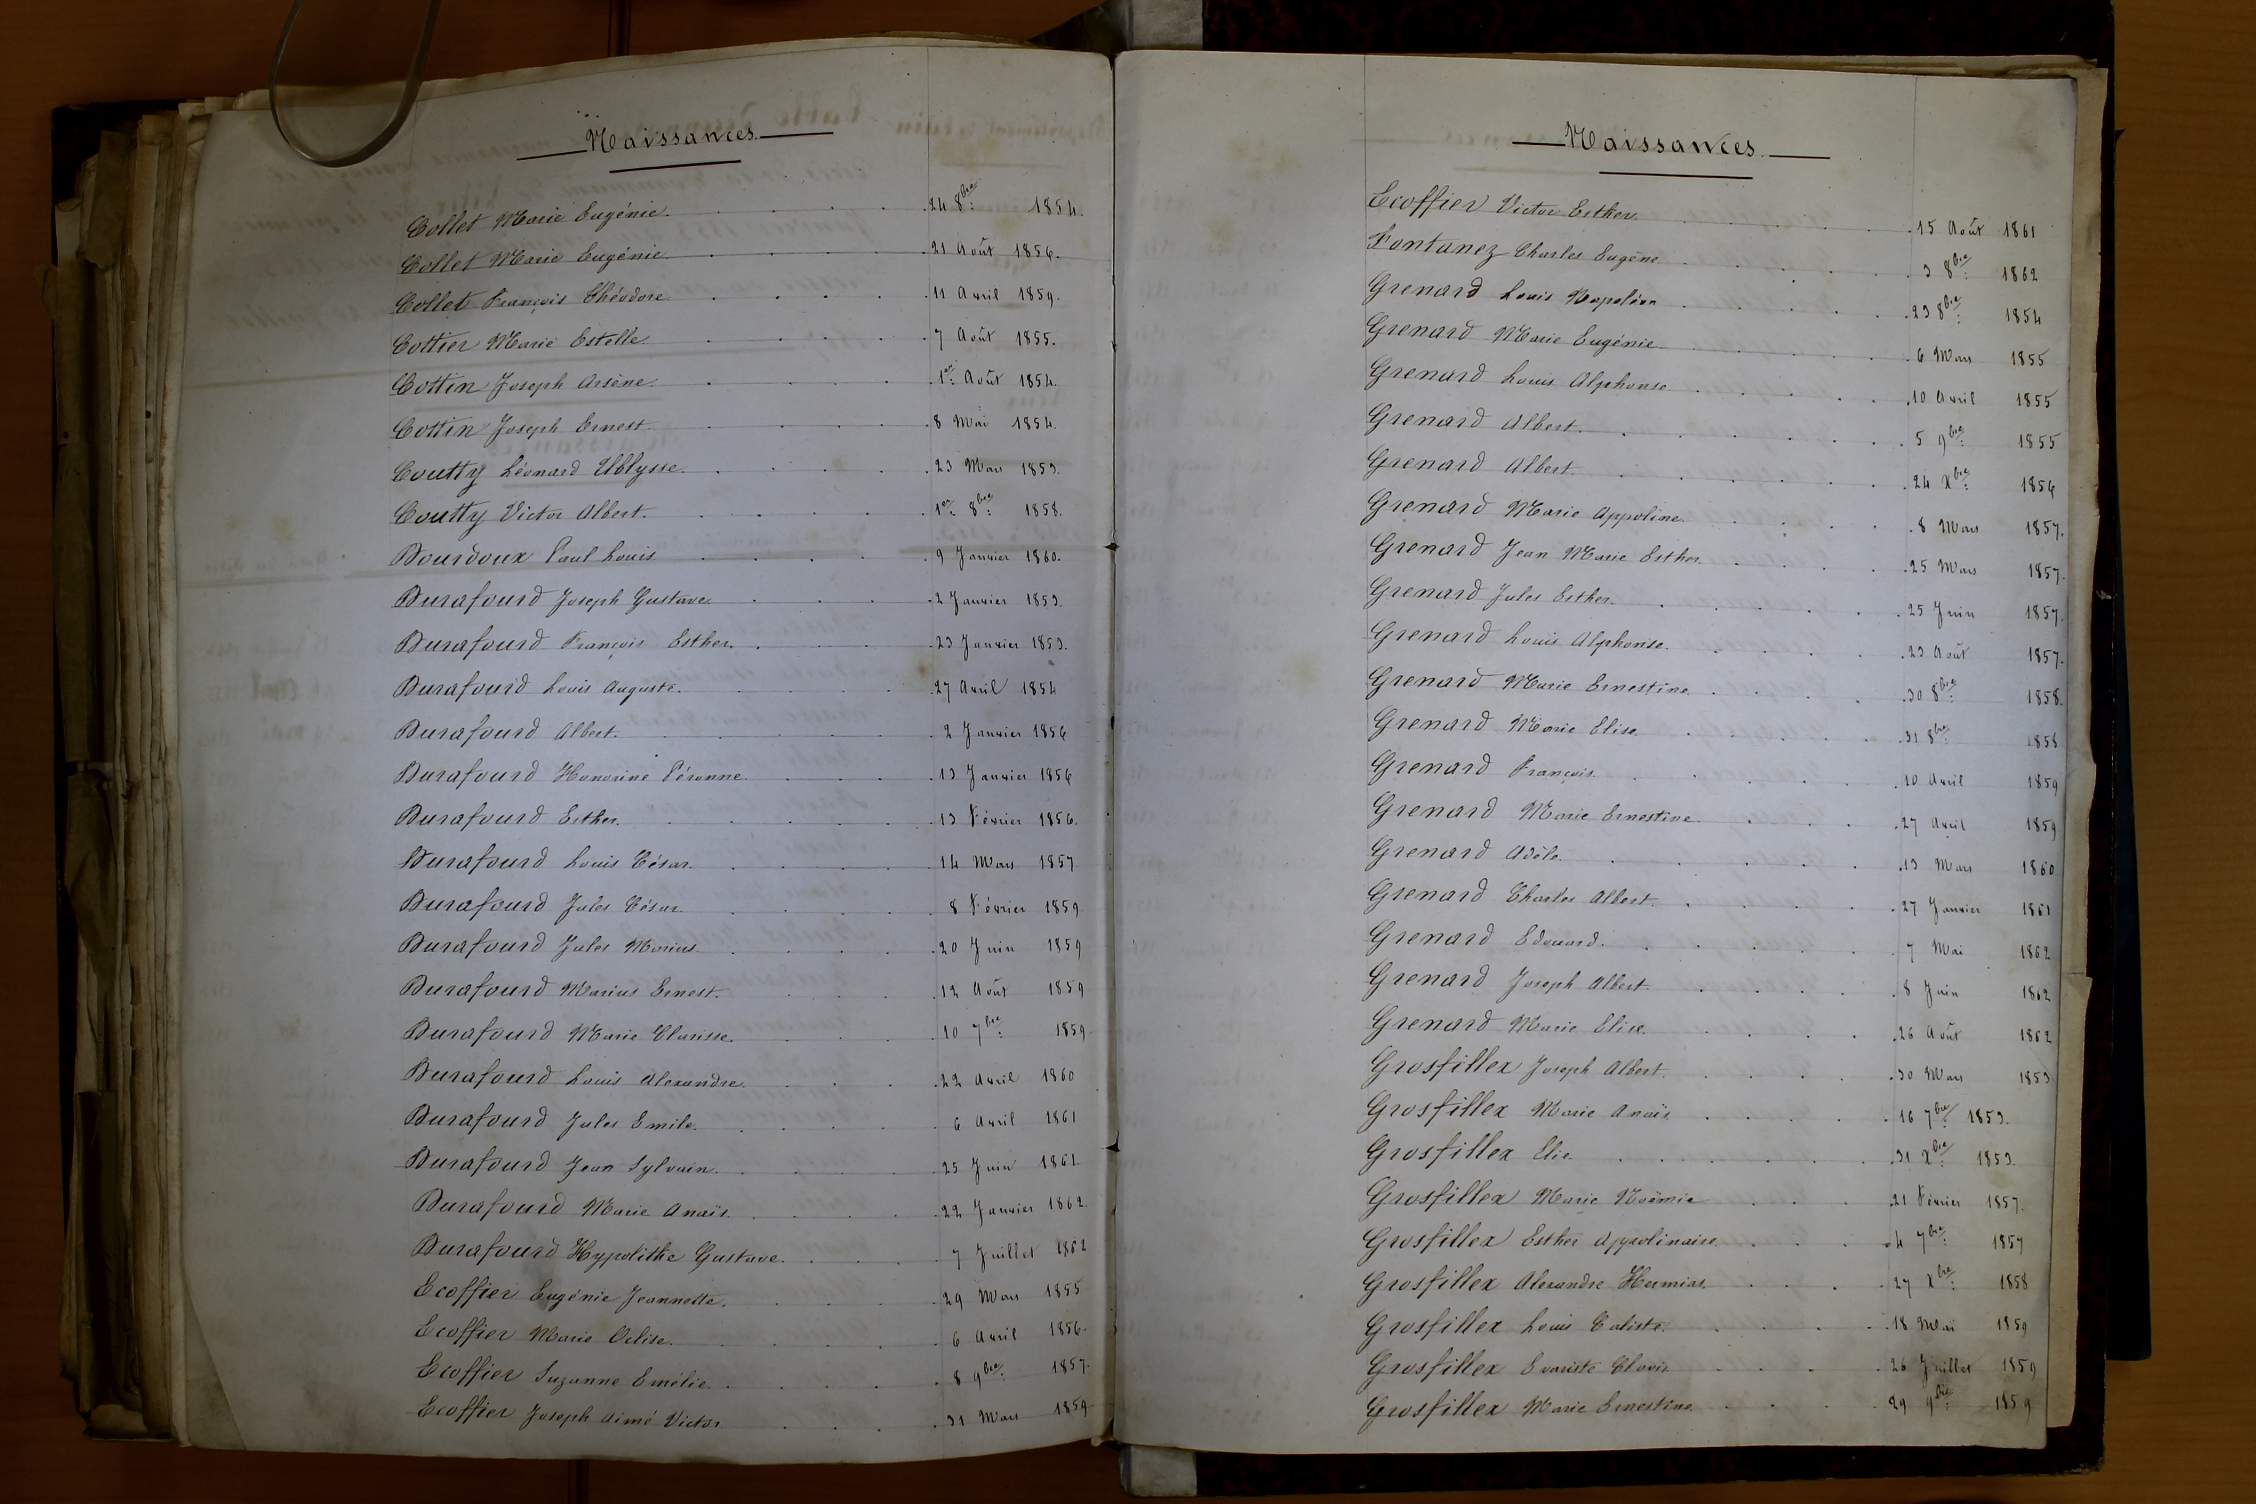 Naissances.
Collet Marie Eugénie. 24 8bre 1854.
Collet Marie Eugénie 21 Août 1856.
Collet François Théodore 11 Avril 1859.
Cottier Marie Estelle 7 Août 1855.
Cottin Joseph Arsène. 1er Août 1854.
Cottin Joseph Ernest. 8 Mai 1854.
Coutty Léonard Ullysse 23 Mars 1853.
Coutty Victor Albert. 1er 8bre 1858.
Dourdoux Paul Louis 9 Janvier 1860.
Durafourd Joseph Gustave 2 Janvier 1853.
Durafourd François Esther. 23 Janvier 1853.
Durafourd Louis Auguste. 27 Avril 1854
Durafourd Albert. 2 Janvier 1856
Durafourd Honorine Péronne 13 Janvier 1856
Durafourd Esther. 13 Février 1856.
Durafourd Louis César. 14 Mars 1857
Durafourd Jules César. 8 Février 1859
Durafourd Jules Marius 20 Juin 1859
Durafourd Marius Ernest. 12 Août 1859
Durafourd Marie Clarisse. 10 7bre 1859
Durafourd Louis Alexandre 22 Avril 1860
Durafourd Jules Emile. 6 Avril 1861
Durafourd Jean Sylvain. 25 Juin 1861
Durafourd Marie Anaïs. 22 Janvier 1862
Durafourd Hypolithe Gustave. 7 Juillet 1862
Ecoffier Eugénie Jeannette. 29 Mars 1855
Ecoffier Marie Oclise. 6 Avril 1856
Ecoffier Suzanne Emélie 8 9bre 1857
Ecoffier Joseph Aimé Victor 31 Mars 1859
Naissances.
Ecoffier Victor Esther. 15 Août 1861
Fontanez Charles Eugène 3 8bre 1862
Grenard Louis Napoléon 23 8bre 1854
Grenard Marie Eugénie 6 Mars 1855
Grenard Louis Alphonse 10 Avril 1855
Grenard Albert. 5 9bre 1855
Grenard Albert. 24 Xbre 1856
Grenard Marie Appoline 8 Mars 1857.
Grenard Jean Marie Esther. 25 Mars 1857.
Grenard Jules Esther. 25 Juin 1857.
Grenard Louis Alphonse. 23 Août 1857.
Grenard Marie Ernestine 30 8bre 1858.
Grenard Marie Elise. 31 8bre 1858
Grenard François 10 Avril 1859
Grenard Marie Ernestine. 27 Avril 1859
Grenard Adèle. 13 Mars 1860
Grenard Charles Albert. 27 Janvier 1861
Grenard Edouard. 7 Mai 1862
Grenard Joseph Albert. 8 Juin 1862
Grenard Marie Elise. 26 Août 1862
Grosfillex Joseph Albert. 30 Mars 1853
Grosfillex Marie Anaïs 16 7bre 1853.
Grosfillex Elie. 31 Xbre 1853.
Grosfillex Marie Noëmie 21 Février 1857.
Grosfillex Esther Appolinaire 4 7bre 1857
Grosfillex Alexandre Hermias. 27 Xbre 1858
Grosfillex Louis Caliste. 18 Mai 1859
Grosfillex Evariste Clovis 26 Juillet 1859
Grosfillex Marie Ernestine 29 9bre 1859